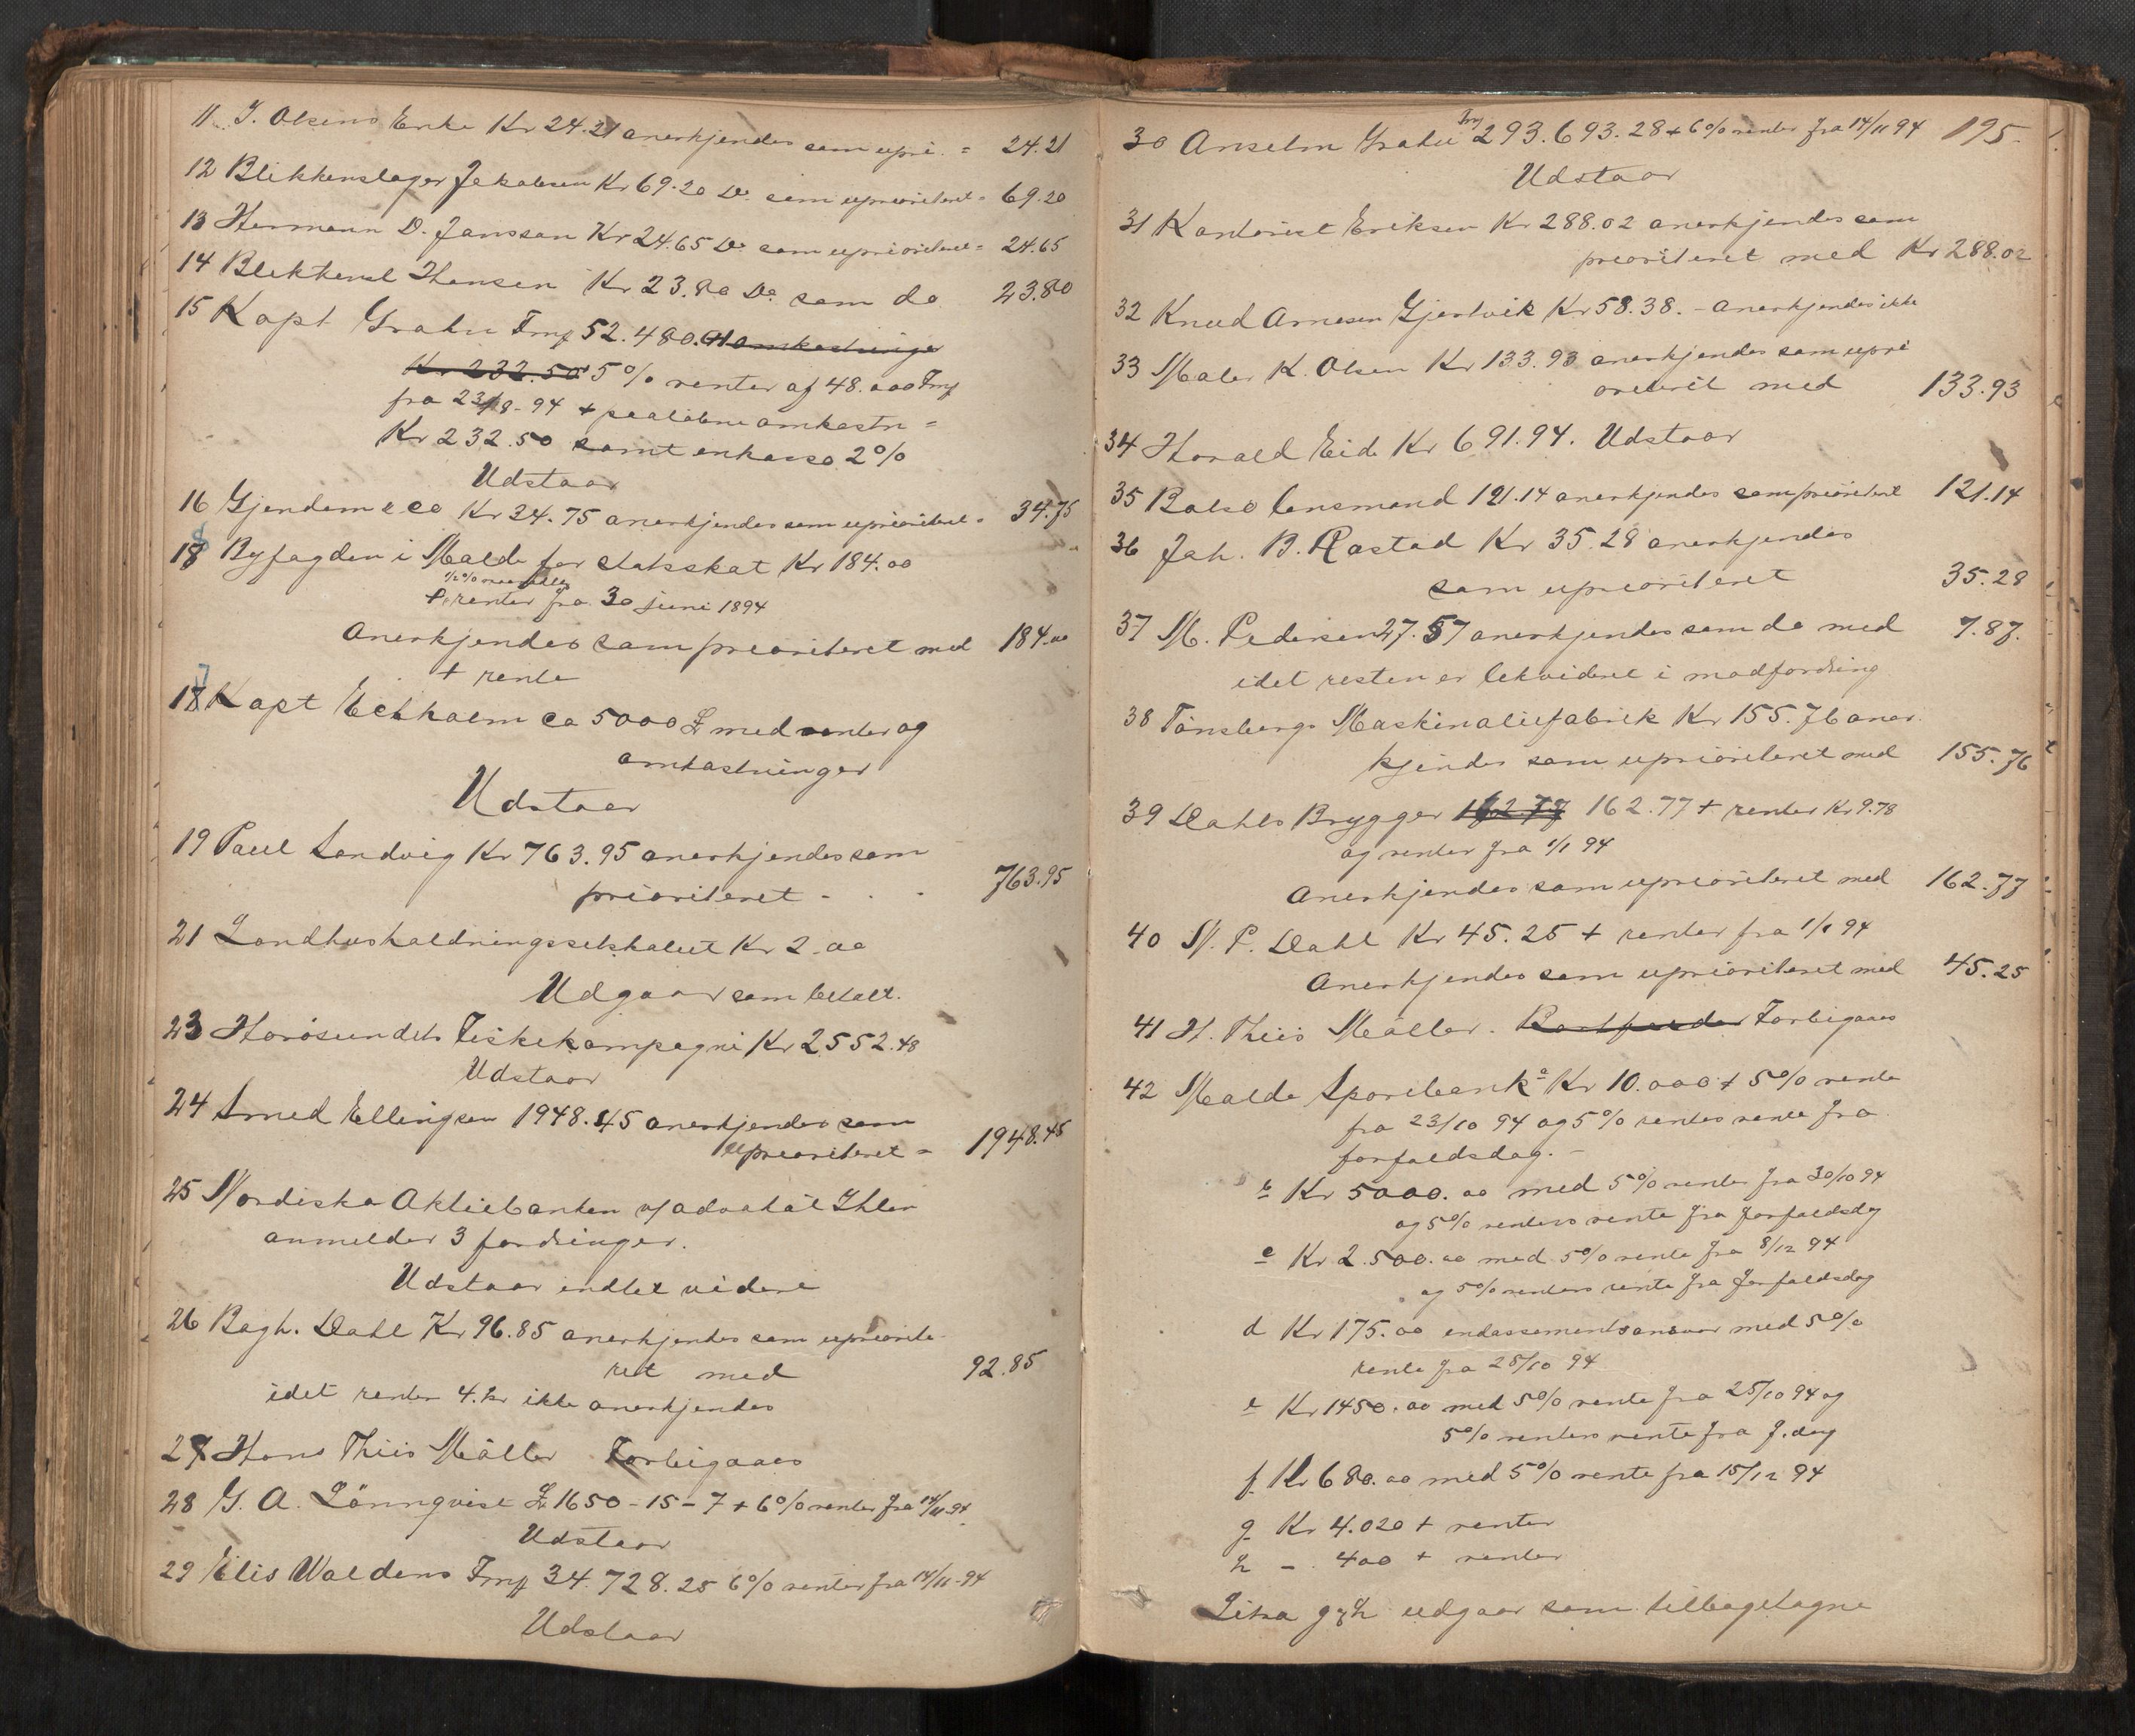 11 J. Olsens Enke Kr 24.21 anerkjendes som upri. = 24.21
12 Blikkenslager Jakobsen Kr 69.20 Do. som uprioriteret = 69.20
13 Hermann D. Janssen Kr 24.65 Do som uprioriteret = 24.65
14 Blikkensl Hansen Kr 23.80 Do. som do 23.80
15 Kapt Grahn Fmf 52.480. omkostninger
Kr 232.50 5% renter af 48.000 Fmf
fra 23/8-94 + paaløbne omkostn =
Kr 232.50 samt inkasso 2%
Udstaar
16 Gjendem & co Kr 34.75 anerkjendes som uprioriteret = 34.75
18 Byfogden i Molde for Statsskat Kr 184.00
renter fra 30 juni 1894
Anerkjendes som prioriteret med 184.00
+ rente
17 Kapt Eckholm ca 5000 £ med renter og
omkostninger
Udstaar
19 Paul Sandvig Kr 763.95 anerkjendes som
prioriteret - . - 763.95
21 Landhusholdningsselskabet Kr 2.00
Udgaar som betalt.
23 Harøsundets Fiskekompagni Kr 2552.48
Udstaar
24 Smed Ellingsen 1948.45 anerkjendes som
uprioriteret = 1948.45
25 Nordiska Aktiebanken v/advokat Ihlen
anmelder 3 fordringer.
Udstaar indtil videre
26 Bagh. Dahl Kr 96.85 anerkjendes som upriorite-
ret med 92.85
idet renter 4. kr ikke anerkjendes
27 Hans Thiis Møller Forbigaaes
28 G. A. Lönnqvist £ 1650-15-7 + 6% renter fra 14/11 94
Udstaar
29 Elis Waldens Fmf 34.728.25 6% renter fra 14/11-94
Udstaar
195.
30 Anselm Grahn Fmf 293.693.28 + 6% renter fra 14/11 94
Udstaar
31 Kontorist Eriksen Kr 288.02 anerkjendes som
prioriteret med Kr 288.02
32 Knud Arnesen Gjertvik Kr 58.38. - anerkjendes ikke
33 Maler K. Olsen Kr 133.93 anerkjendes som upri
oriteret med 133.93
34 Harald Eide Kr 691.94. Udstaar
35 Bolsø lensmand 121.14 anerkjendes som prioriteret 121.14
36 Joh. B. Rastad Kr 35.28 anerkjendes
som uprioriteret 35.28
37 M. Pedersen 27.57 anerkjendes som do med 7.87.
idet resten er likvideret i modfordring
38 Tønsbergs Maskinoliefabrik Kr 155.76 aner
kjendes som uprioriteret med 155.76
39 Dahls Bryggeri 162.77 162.77 + renter Kr 9.78
og renter fra 1/1 94
Anerkjendes som uprioriteret med 162.77
40 M. P. Dahl Kr 45.25 + renter fra 1/1 94
Anerkjendes som uprioriteret med 45.25
41 H. Thiis Møller. Bortfalder Forbigaaes
42 Molde Sparebank a Kr 10.000 + 5% rente
fra 23/10 94 og 5% renters rente fra
forfaldsdag. -
b Kr 5000.00 med 5% renter fra 30/10 94
og 5% renters rente fra forfaldsdag
c Kr 2.500.00 med 5% rente fra 8/12 94
og 5% renters rente fra forfaldsdag
d Kr 175.00 endossementsansvar med 5%
rente fra 25/10 94
e Kr 1450.00 med 5% rente fra 25/10 94 og
5% renters rente fra f.dag
f Kr 680.00 med 5% rente fra 15/12 94
g Kr 4.020 + renter
h - 400 + renter
Litra g & h udgaar som tilbagetagne